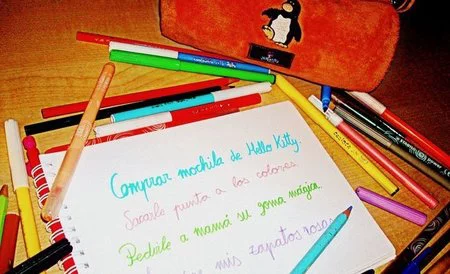 Comprar mochila de Hello Kitty.
Sacarle punta a los colores.
Pedirle a mamá su goma mágica.
mis zapatos rosas